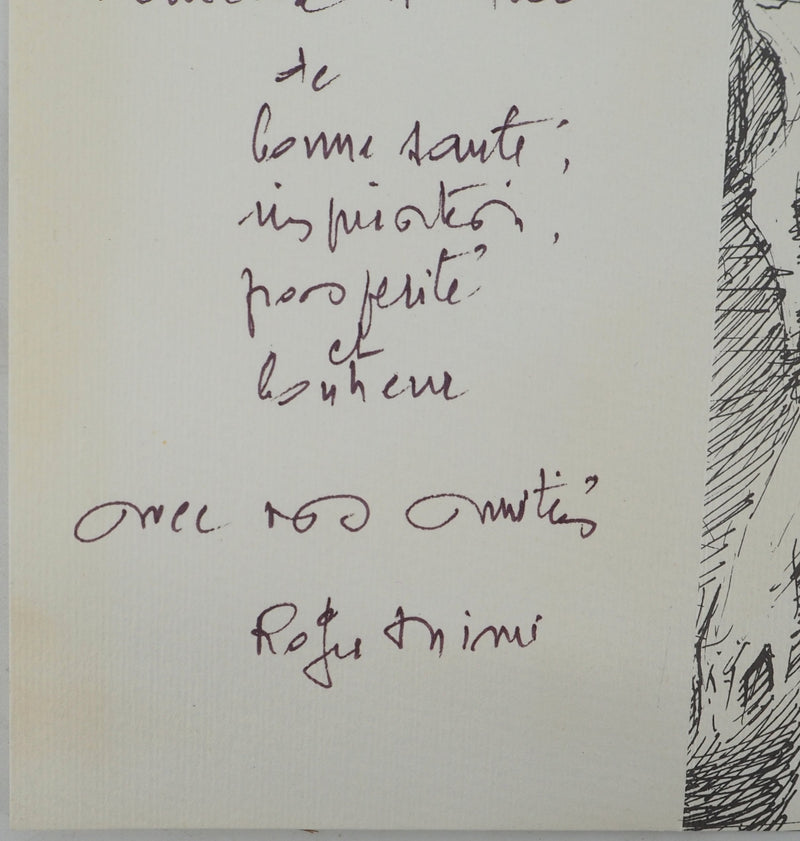 de
bonne santé,
inspiration,
prospérité
et
bonheur
avec nos amitiés
Roger &